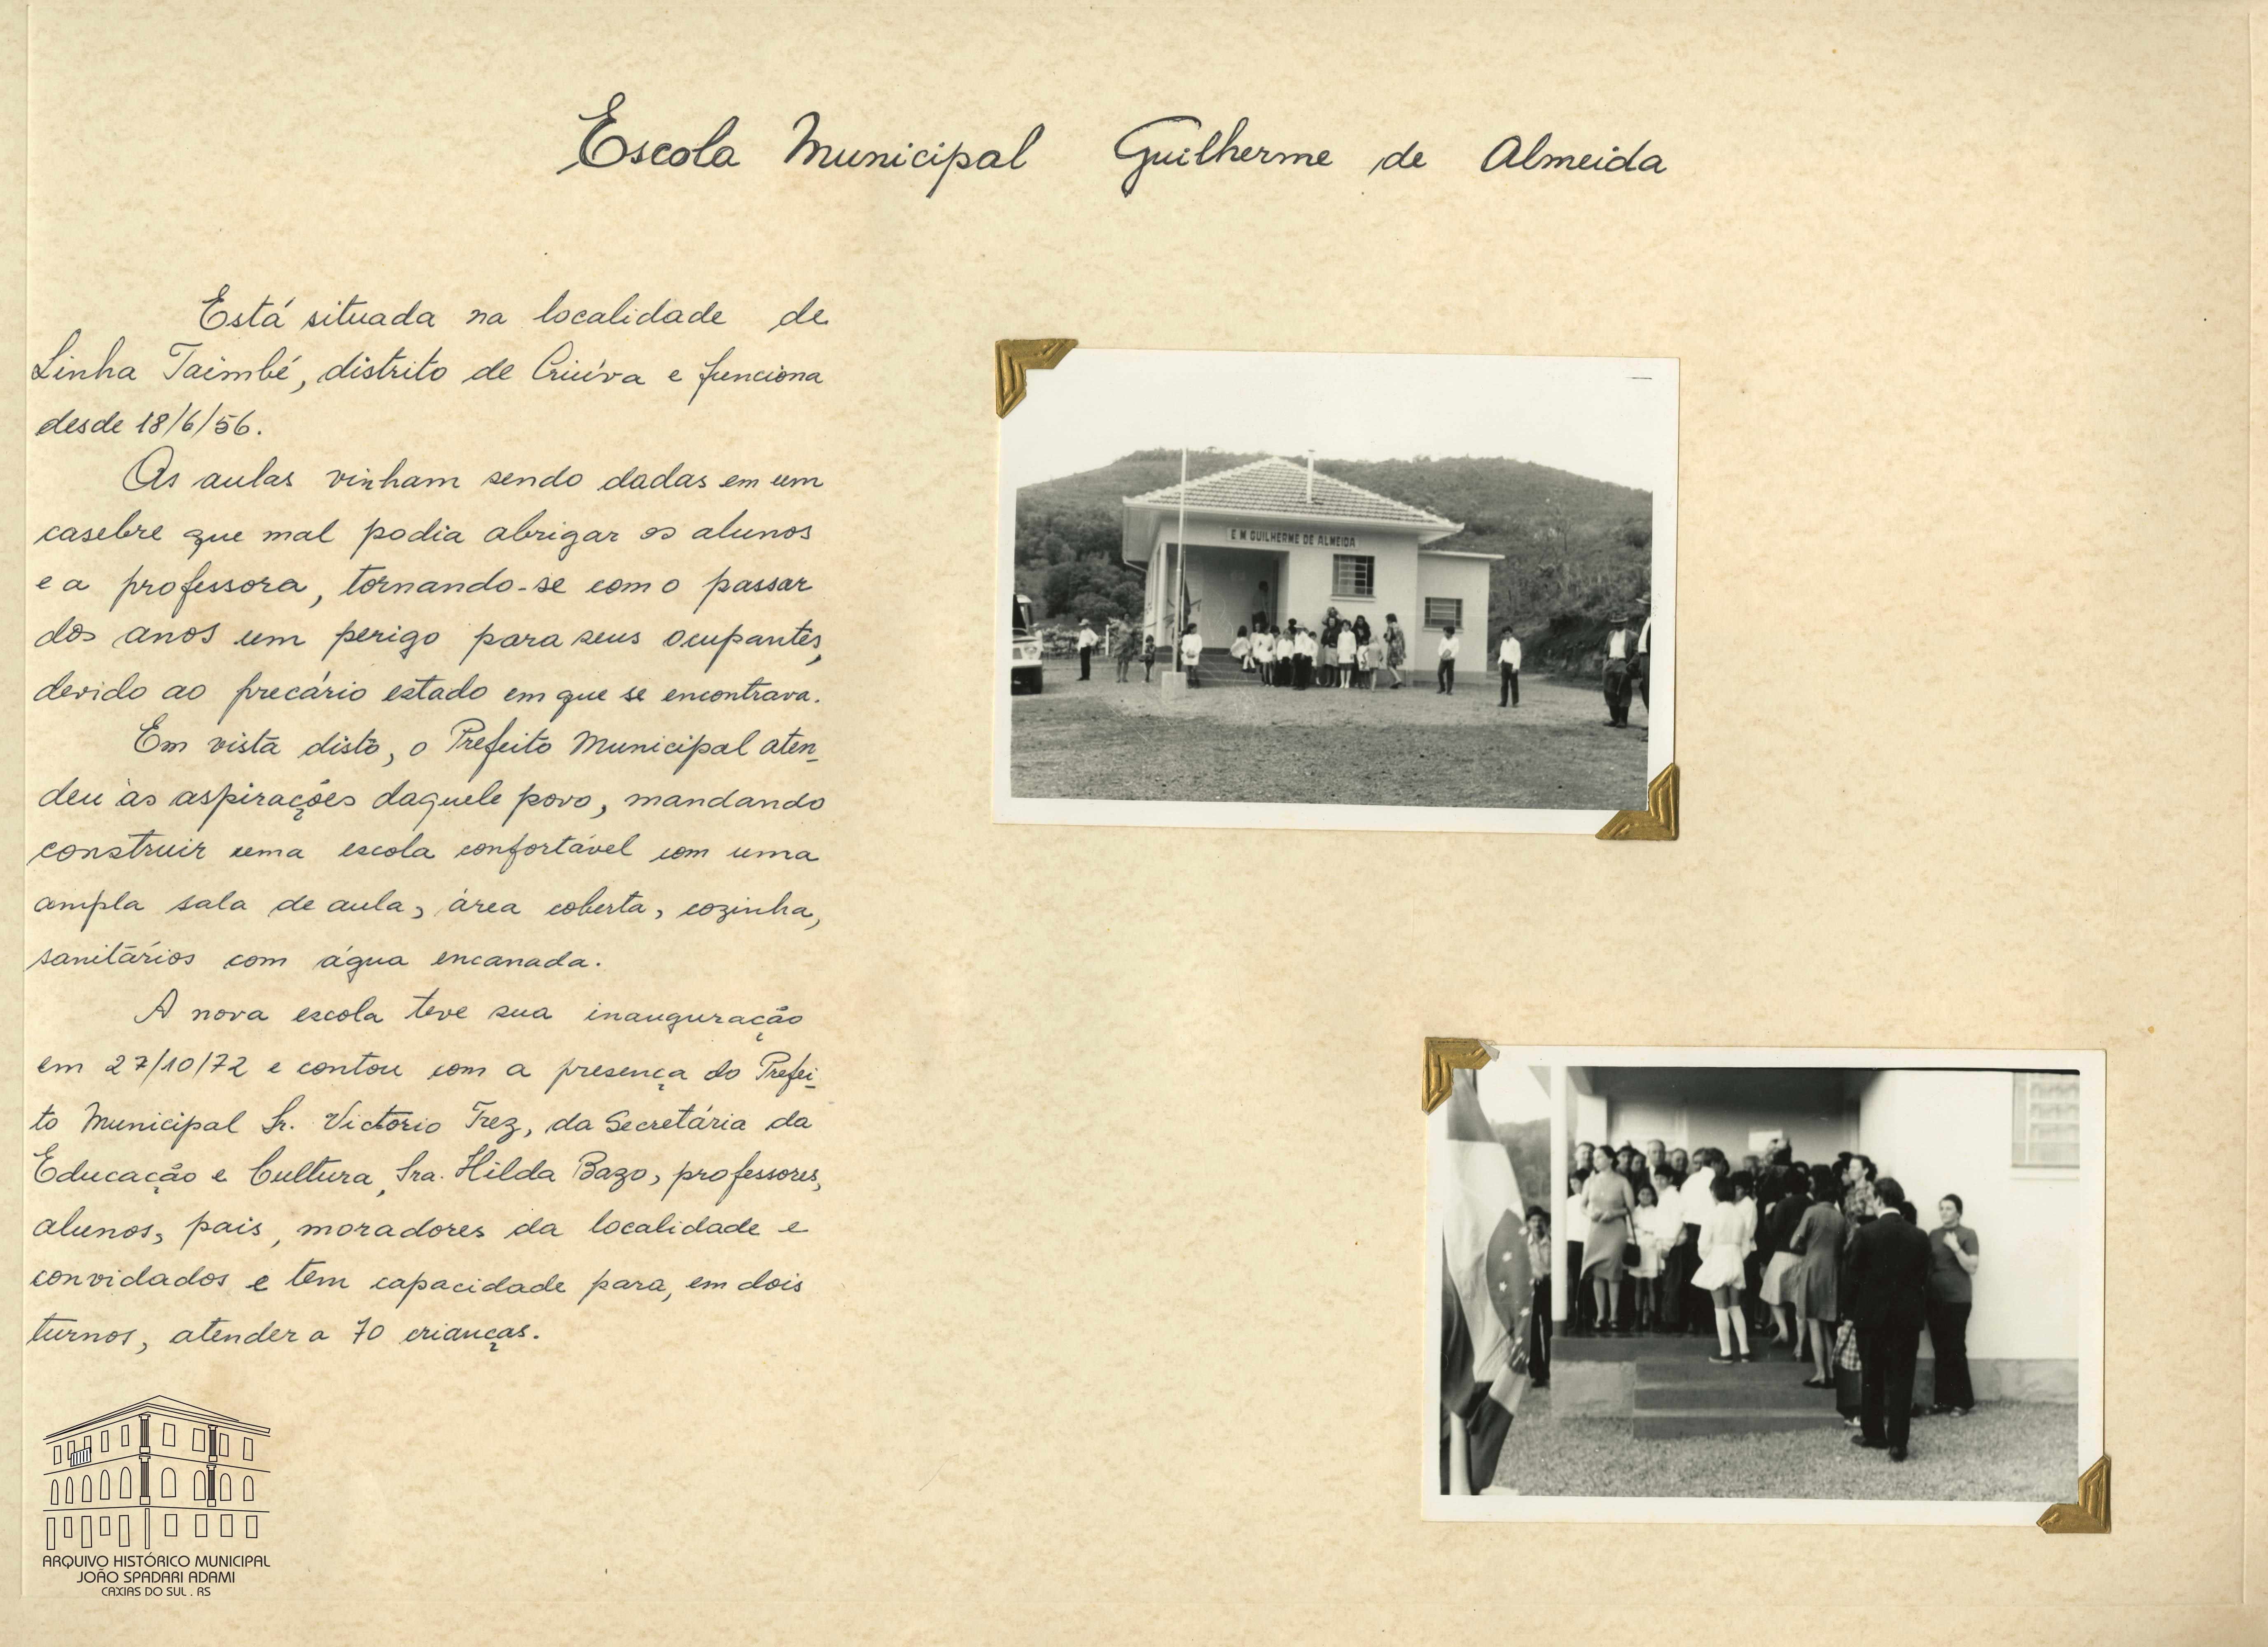 Escola Municipal Guilherme de Almeida
Está situada na localidade de
Linha Taimbé, distrito de Criúva e funciona
desde 18/6/56.
As aulas vinham sendo dadas em um
casebre que mal podia abrigar os alunos
e a professora, tornando-se com o passar
dos anos um perigo para seus ocupantes,
devido ao precário estado em que se encontrava.
Em vista disto, o Prefeito Municipal aten-
deu às aspirações daquele povo, mandando
construir uma escola confortável com uma
ampla sala de aula, área coberta, cozinha,
sanitários com água encanada.
A nova escola teve sua inauguração
em 27/10/72 e contou com a presença do Prefei-
to Municipal Sr. Victorio Trez, da Secretária da
Educação e Cultura, Sra. Hilda Bazo, professores,
alunos, pais, moradores da localidade e
convidados e tem capacidade para, em dois
turnos, atender a 70 crianças.
E M GUILHERME DE ALMEIDA
ARQUIVO HISTÓRICO MUNICIPAL
JOÃO SPADARI ADAMI
CAXIAS DO SUL . RS